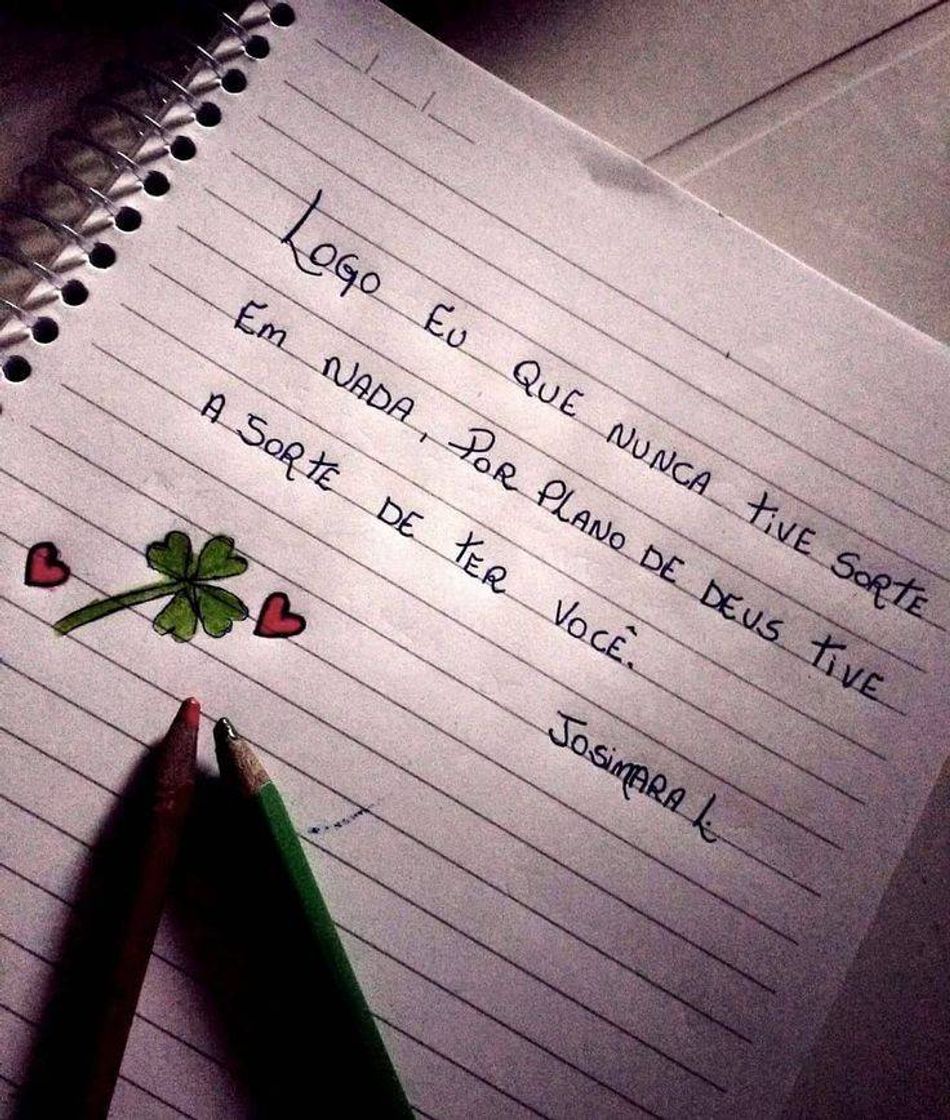 LOGO EU QUE NUNCA TIVE SORTE
EM NADA, POR PLANO DE DEUS TIVE
A SORTE DE TER VOCÊ.
JOSIMARA L.